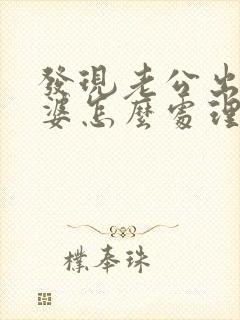 發現老公出
婆怎麼處理
樸奉珠